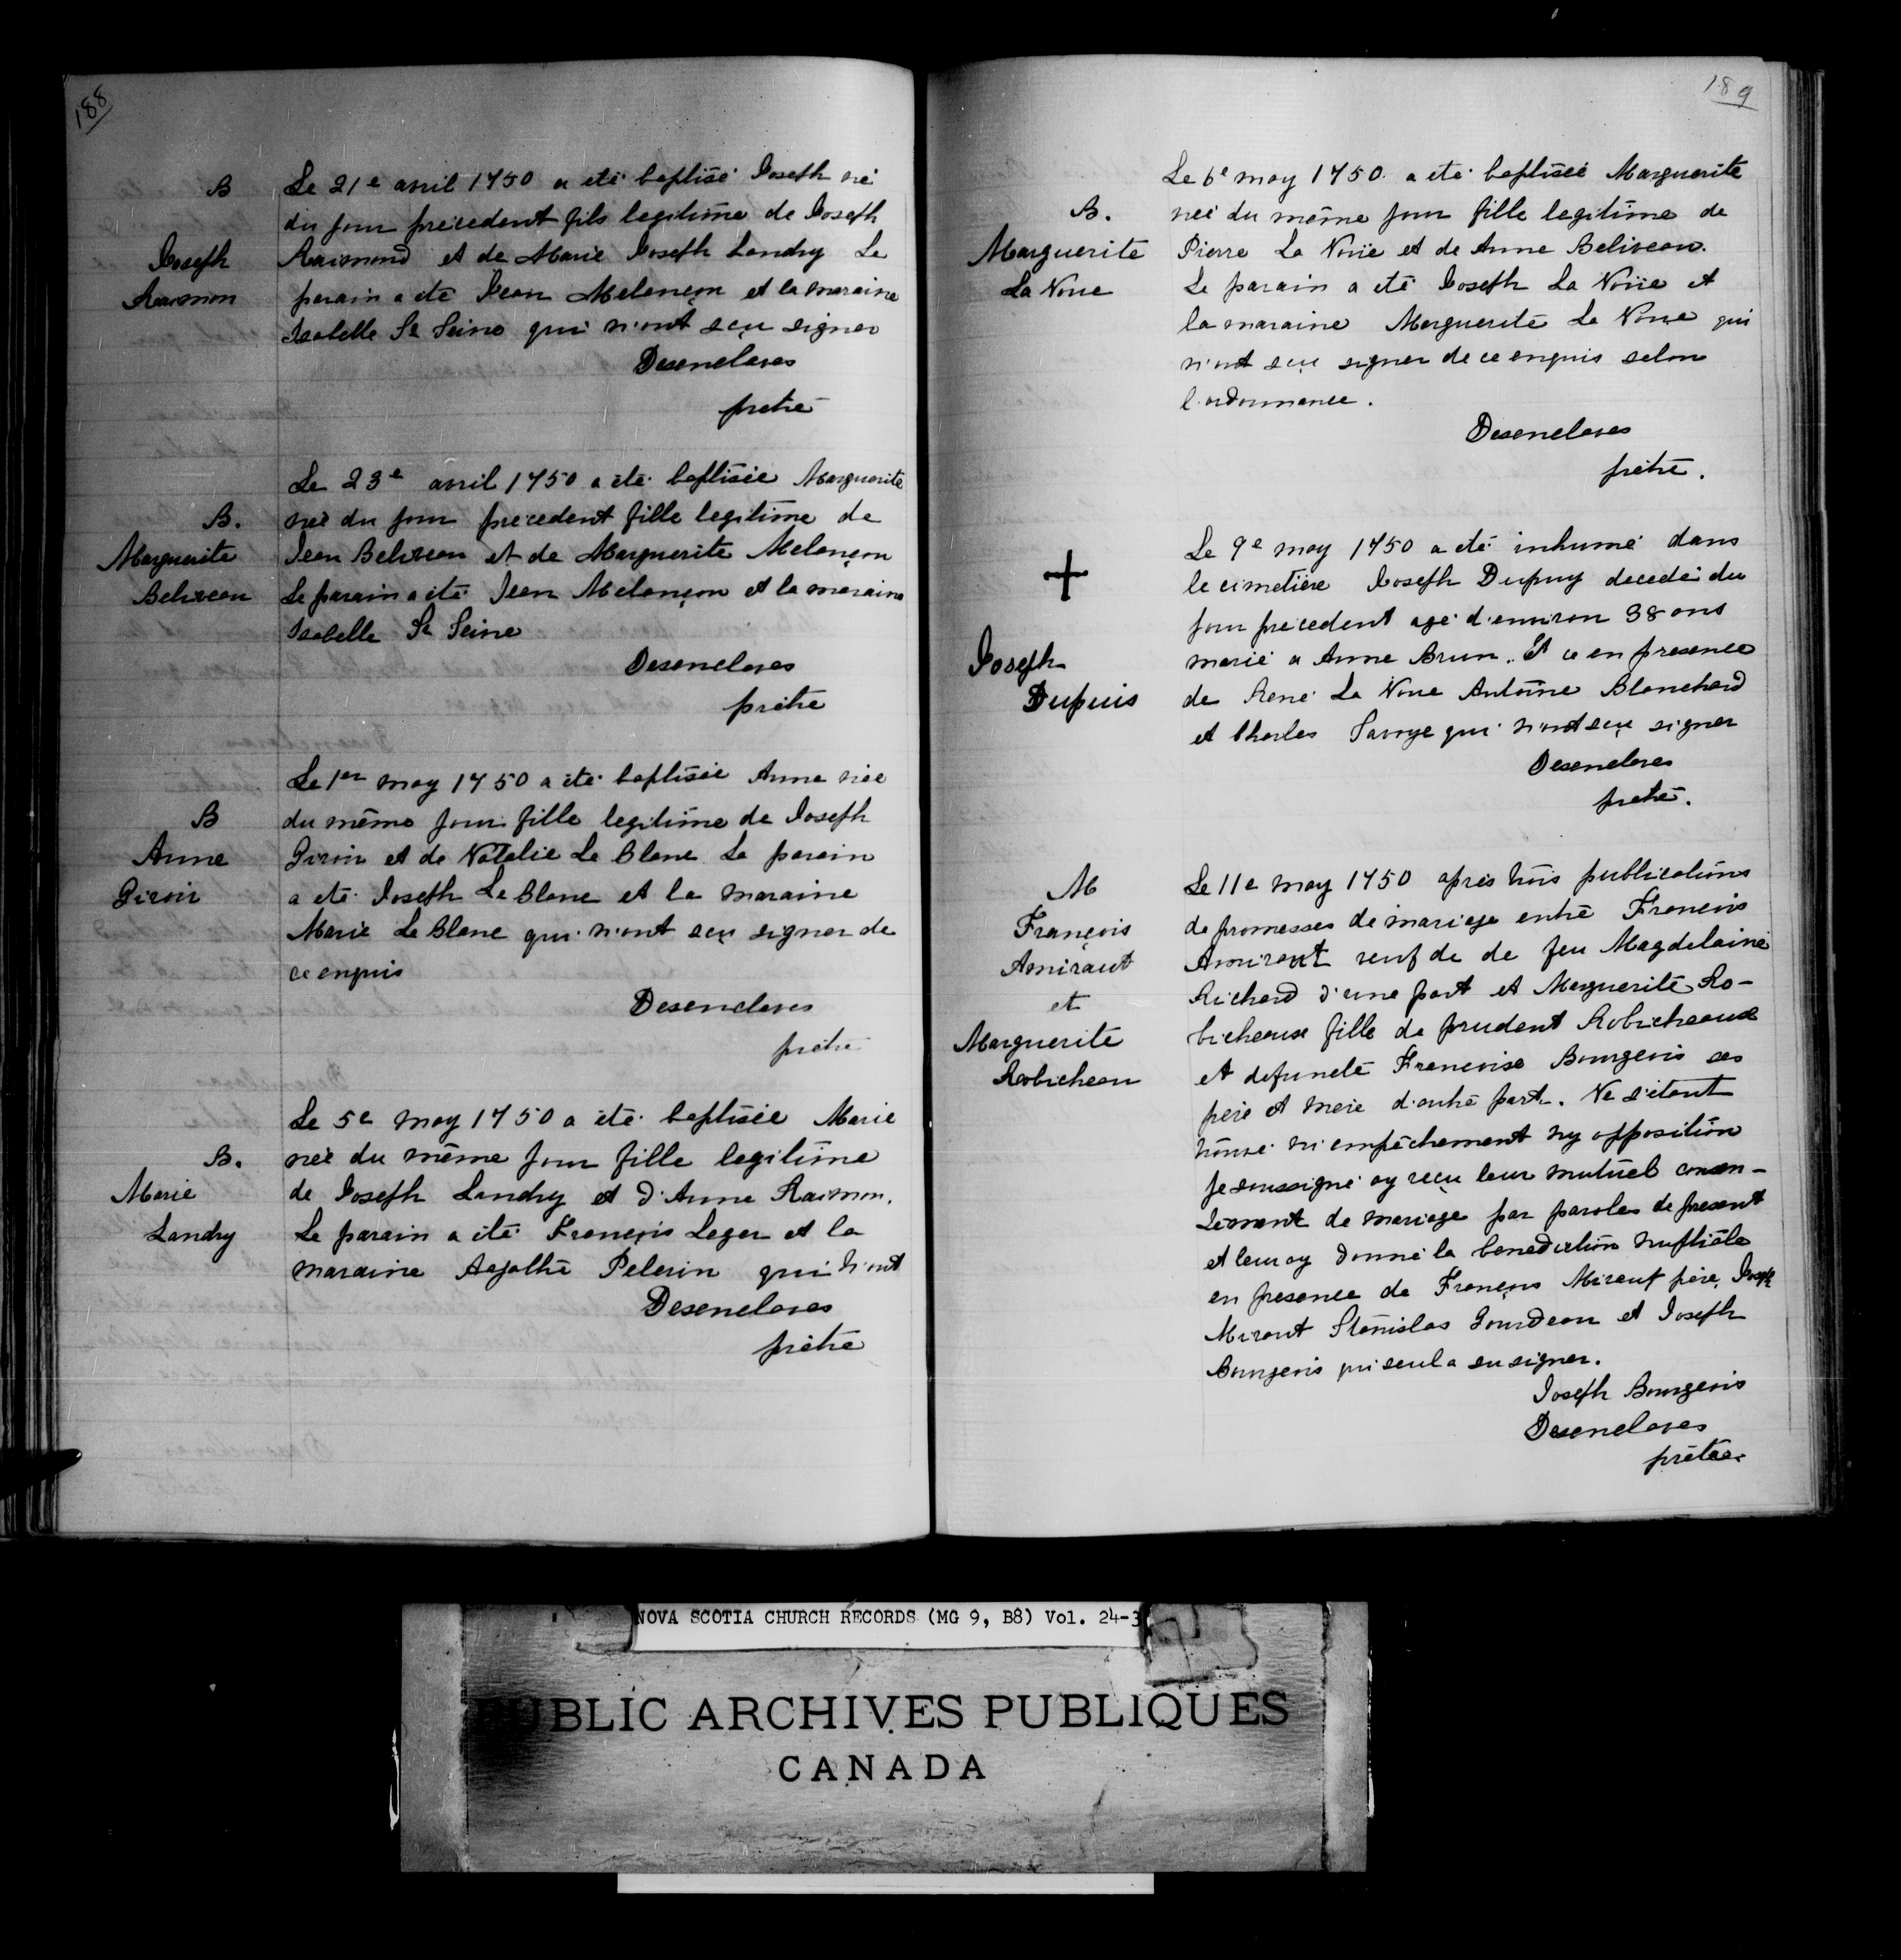 188
B
Joseph
Raimon
Le 21e avril 1750 a eté baptisé Joseph né
du jour precedent fils legitime de Joseph
Raimond et de Marie Joseph Landry Le
parain a été Jean Melançon et la maraine
Isabelle St Seine qui n'ont sçu signer
Desenclaves
prêtre
B.
Marguerite
Beliveau
Le 23e avril 1750 a été baptisée Marguerite
née du jour precedent fille legitime de
Jean Beliveau et de Marguerite Melançon
Le parain a été Jean Melançon et la maraine
Isabelle St Seine
Desenclaves
prêtre
B
Anne
Giroir
Le 1er may 1750 a été baptisée Anne née
du même jour fille legitime de Joseph
Giroir et de Natalie Le Blanc Le parain
a eté Joseph Le Blanc et la maraine
Marie Le Blanc qui n'ont sçu signer de
ce enquis
Desenclaves
prêtre
B.
Marie
Landry
Le 5e may 1750 a été baptisée Marie
née du même jour fille legitime
de Joseph Landry et d'Anne Raimon.
Le parain a été François Leger et la
maraine Agathe Pelerin qui n'ont
Desenclaves
prêtre
189
B.
Marguerite
La Noue
Le 6e may 1750 a eté baptisée Marguerite
née du même jour fille legitime de
Pierre La Noüe et de Anne Beliveau.
Le parain a eté Joseph La Noüe et
la maraine Marguerite La Noue qui
n'ont sçu signer de ce enquis selon
l'ordonnance.
Desenclaves
prêtre.
+
Joseph
Dupuis
Le 9e may 1750 a eté inhumé dans
le cimetière Joseph Dupuy decedé du
jour precedent agé d'environ 38 ans
marié a Anne Brun. Et ce en presence
de René La Noue Antoine Blanchard
et Charles Savoye qui n'ont sçu signer
Desenclaves
prêtre.
M
François
Amiraut
et
Marguerite
Robicheau
Le 11e may 1750 après trois publications
de promesses de mariage entre François
Amiraut veuf de de feu Magdelaine
Richard d'une part et Marguerite Ro-
bicheaux fille de prudent Robicheaux
et defuncte Francoise Bourgeois ses
père et mere d'autre part. Ne s'étant
trouvé ni empêchement ny opposition
je soussigné ay reçu leur mutuel consen-
tement de mariage par paroles de present
et leur ay donné la benediction nuptiale
en presence de François Miraut père, Joseph
Miraut Stanislas Gourdeau et Joseph
Bourgeois qui seul a su signer.
Joseph Bourgeois
Desenclaves
prêtre.
NOVA SCOTIA CHURCH RECORDS (MG 9, B8) Vol. 24-3
PUBLIC ARCHIVES PUBLIQUES
CANADA